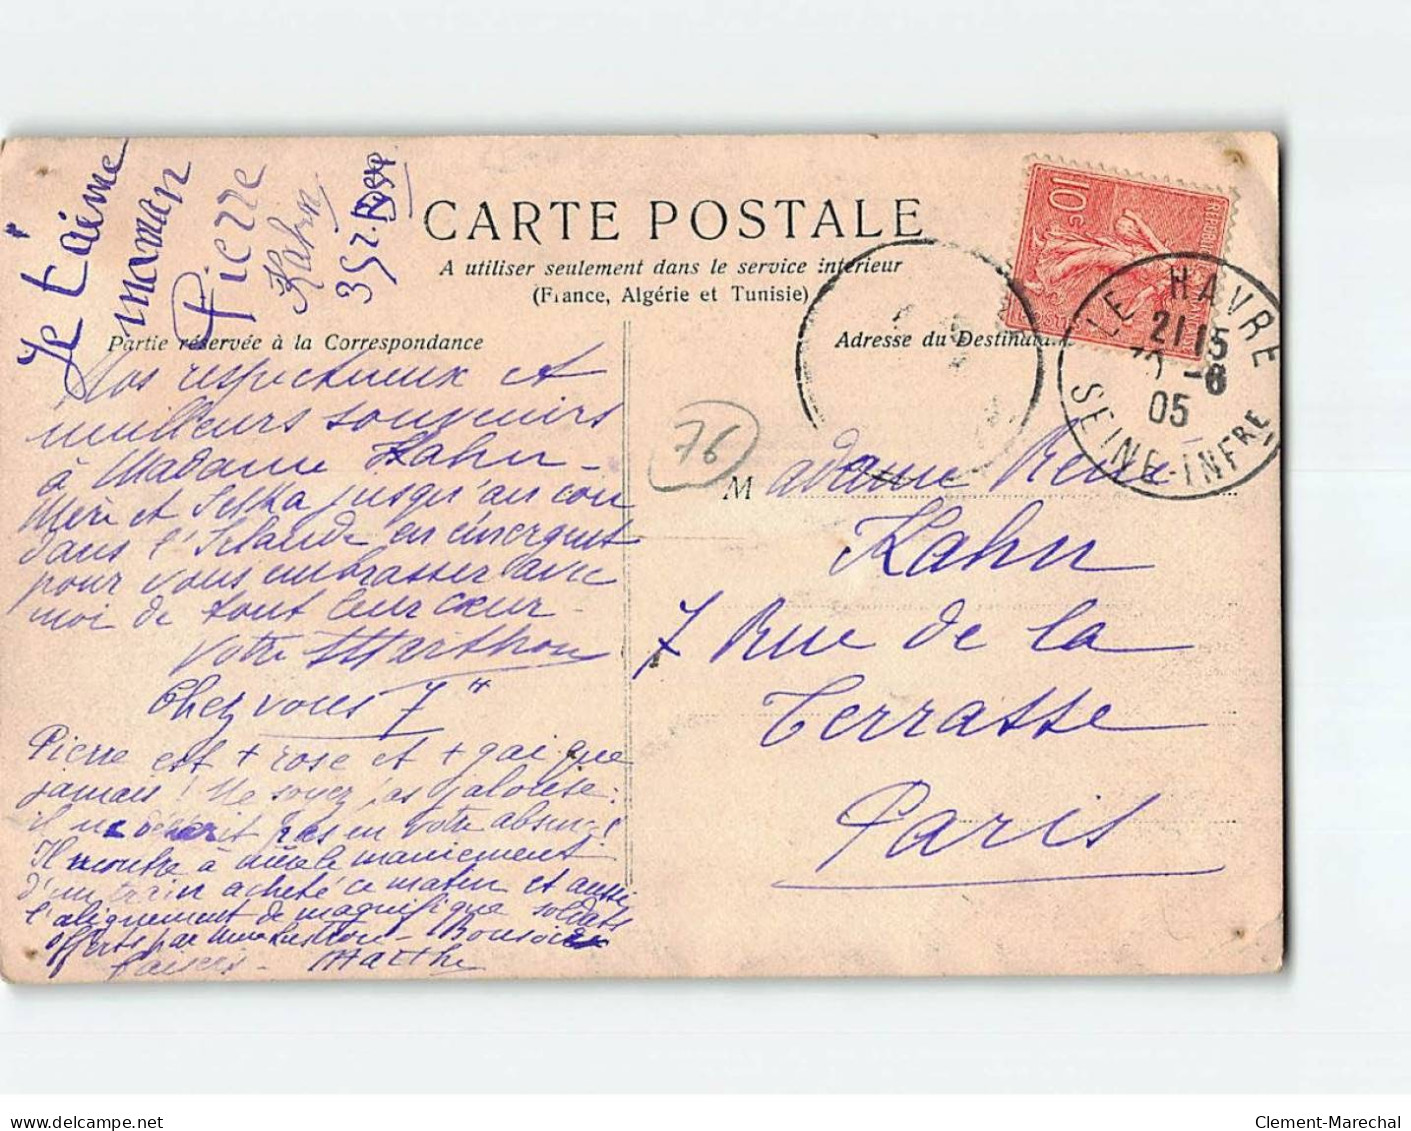 Je t'aime
maman
Pierre
Kahn
CARTE POSTALE
A utiliser seulement dans le service intérieur
(France, Algérie et Tunisie)
Partie réservée à la Correspondance
Adresse du Destinataire
10c
LE HAVRE
21 15
-8
05
SEINE-INFRE
76
Nos respectueux et
meilleurs souvenirs
à Madame Kahn
Mère et jusqu'au cou
dans l'
pour vous embrasser avec
moi de tout leur cœur
Votre Marthon
Chez vous 7h
Pierre est + rose et + gai que
jamais ! Ne soyez pas jalouse :
il ne pas en votre absence !
Il montre à le maniement
d'un train acheté ce matin et aussi
l'alignement de magnifique soldats
offerts par Bonsoir
baisers - Marthe
Madame René
Kahn
7 Rue de la
Terrasse
Paris
Clement-Marechal
www.delcampe.net